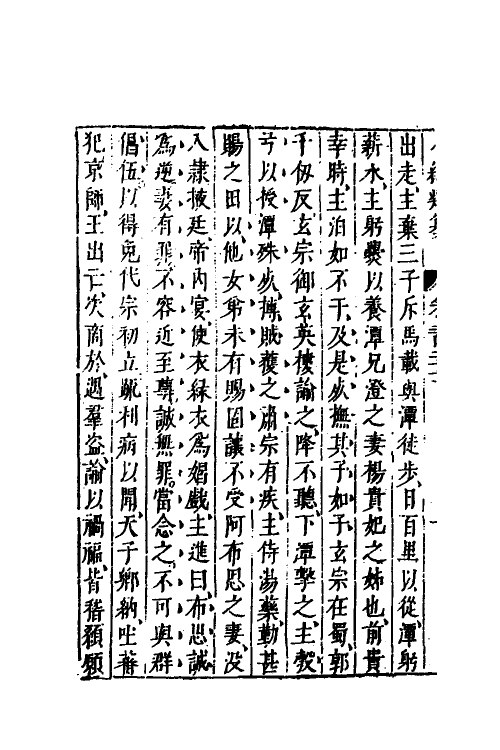 出走主棄三子斥馬載與潭徒步日百里以從潭躬
薪水主躬爨以養潭兄澄之妻楊貴妃之姊也前貴
幸時主泊如不干及是死撫其子如子玄宗在蜀郭
千仭反玄宗御玄英樓諭之降不聽下潭擊之主彀
弓以授潭殊死摶賊獲之肅宗有疾主侍湯藥勤甚
賜之田以他女弟未有賜固讓不受阿布思之妻沒
入隷掖廷帝內宴使衣綠衣為娼戲主進曰布思誠
為逆妻有罪不容近至尊誠無罪當念之不可與群
倡伍以得免代宗初立利病以聞天子鄉納吐蕃
犯京師王出亡次商於遇羣盜諭以禍福皆稽顙願